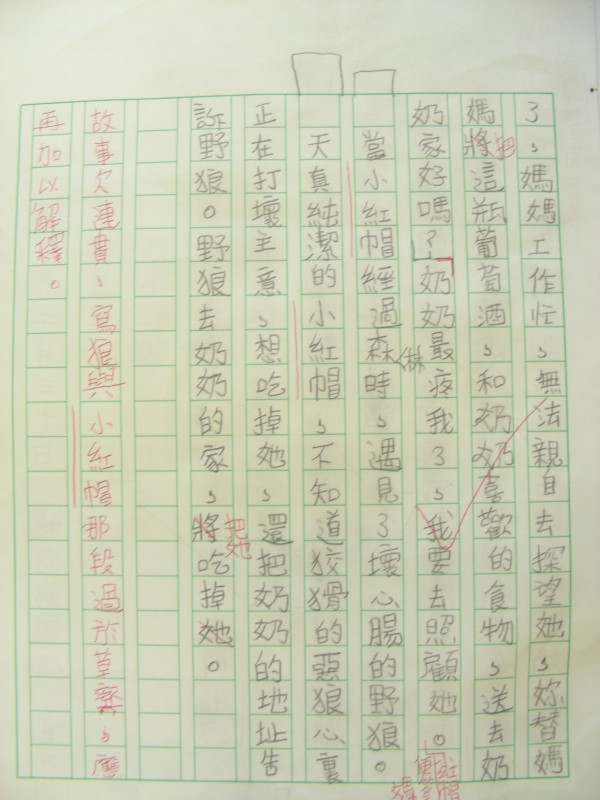 了，媽媽工作忙，無法親自去探望她，妳替媽
媽將把這瓶葡萄酒，和奶奶喜歡的食物，送去奶
奶家好嗎？奶奶最疼我了，我要去照顧她。
當小紅帽經過森林時，遇見了壞心腸的野狼。
天真純潔的小紅帽，不知道狡猾的惡狼心裏
正在打壞主意，想吃掉她，還把奶奶的地址告
訴野狼。野狼去奶奶的家，將把她吃掉她。
故事欠連貫，寫狼與小紅帽那段過於草率，應
再加以解釋。